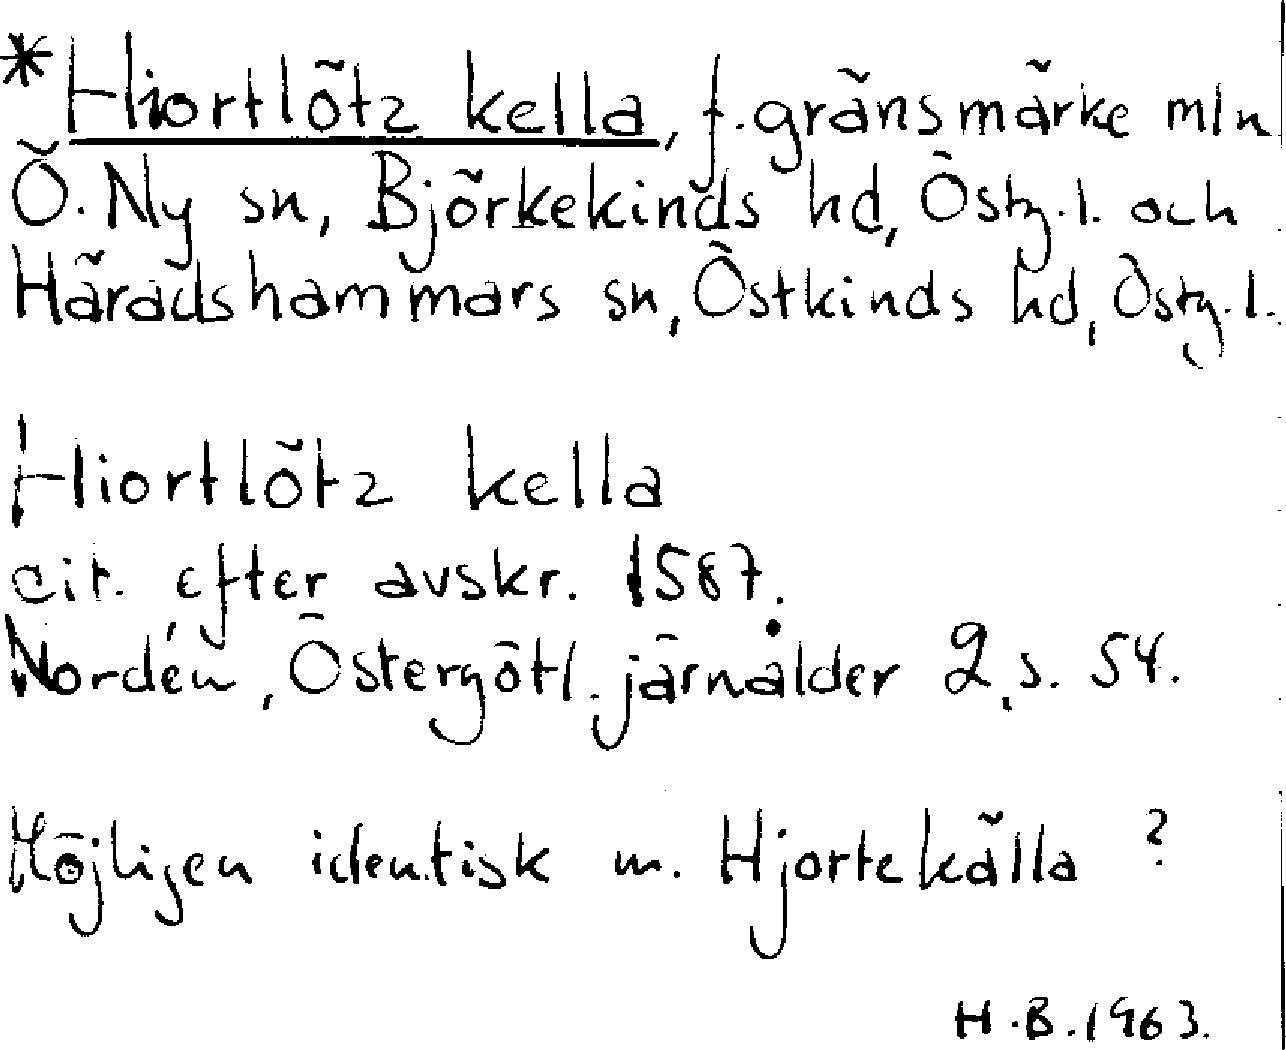 *Hiortlötz kella, f. gränsmärke mln
Ö. Ny sn, Björkekinds hd, Östg. l. och
Häradshammars sn, Östkinds hd, Östg. l.
Hiortlötz kella
cit. efter avskr. 1587.
Nordén, Östergötl. järnålder 2, s. 54.
Möjligen identisk m. Hjortekälla ?
H.B. 1963.